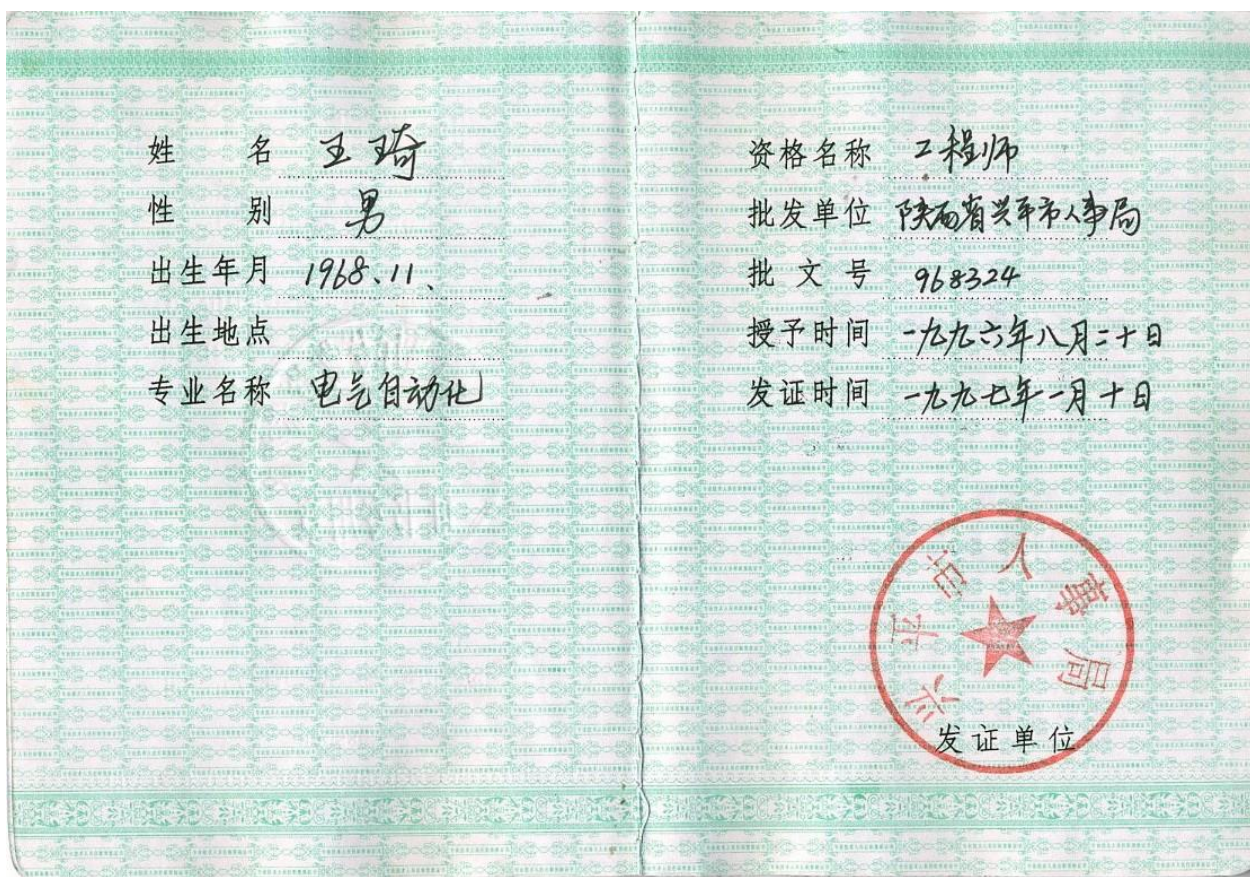 姓名 王琦
性别 男
出生年月 1968、11、
出生地点
专业名称 电气自动化
资格名称 工程师
批发单位 陕西省兴平市人事局
批文号 968324
授予时间 一九九六年八月二十日
发证时间 一九九七年一月十日
兴平市人事局
发证单位